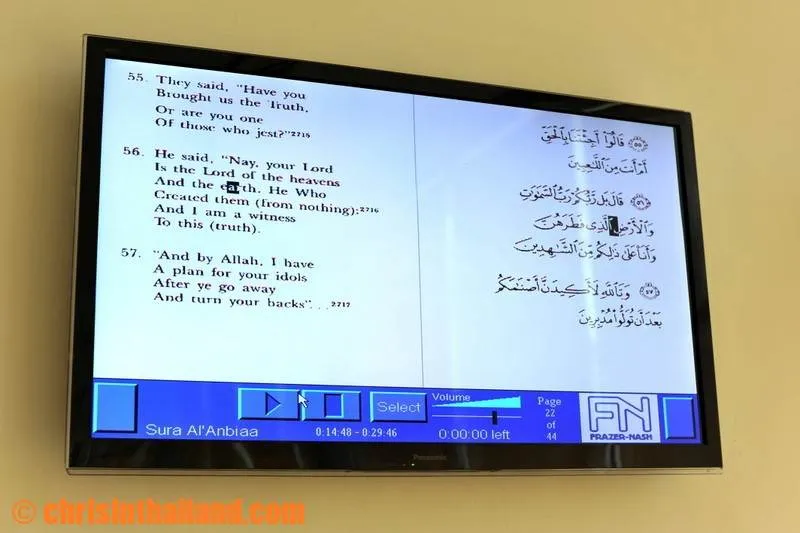 55. They said, "Have you
Brought us the Truth,
Or are you one
Of those who jest?"2715
56. He said, "Nay, your Lord
Is the Lord of the heavens
And the earth. He Who
Created them (from nothing):2716
And I am a witness
To this (truth).
57. "And by Allah, I have
A plan for your idols
After ye go away
And turn your backs". . . 2717
٥٥ قَالُوٓا۟ أَجِئْتَنَا بِٱلْحَقِّ
أَمْ أَنتَ مِنَ ٱللَّٰعِبِينَ
٥٦ قَالَ بَل رَّبُّكُمْ رَبُّ ٱلسَّمَٰوَٰتِ
وَٱلْأَرْضِ ٱلَّذِى فَطَرَهُنَّ
وَأَنَا۠ عَلَىٰ ذَٰلِكُم مِّنَ ٱلشَّٰهِدِينَ
٥٧ وَتَٱللَّهِ لَأَكِيدَنَّ أَصْنَٰمَكُم
بَعْدَ أَن تُوَلُّوا۟ مُدْبِرِينَ
Sura Al'Anbiaa
0:14:48 - 0:29:46
Select
Volume
0:00:00 left
Page
22
of
44
FN
FRAZER-NASH
Panasonic
© chrisinthailand.com